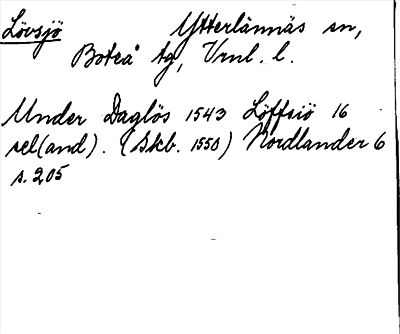 Lövsjö Ytterlännäs sn,
Boteå tg, Vrnl. l.
Under Daglös 1543 Löffsiö 16
sel(and). (Skb. 1550) Nordlander 6
s. 205